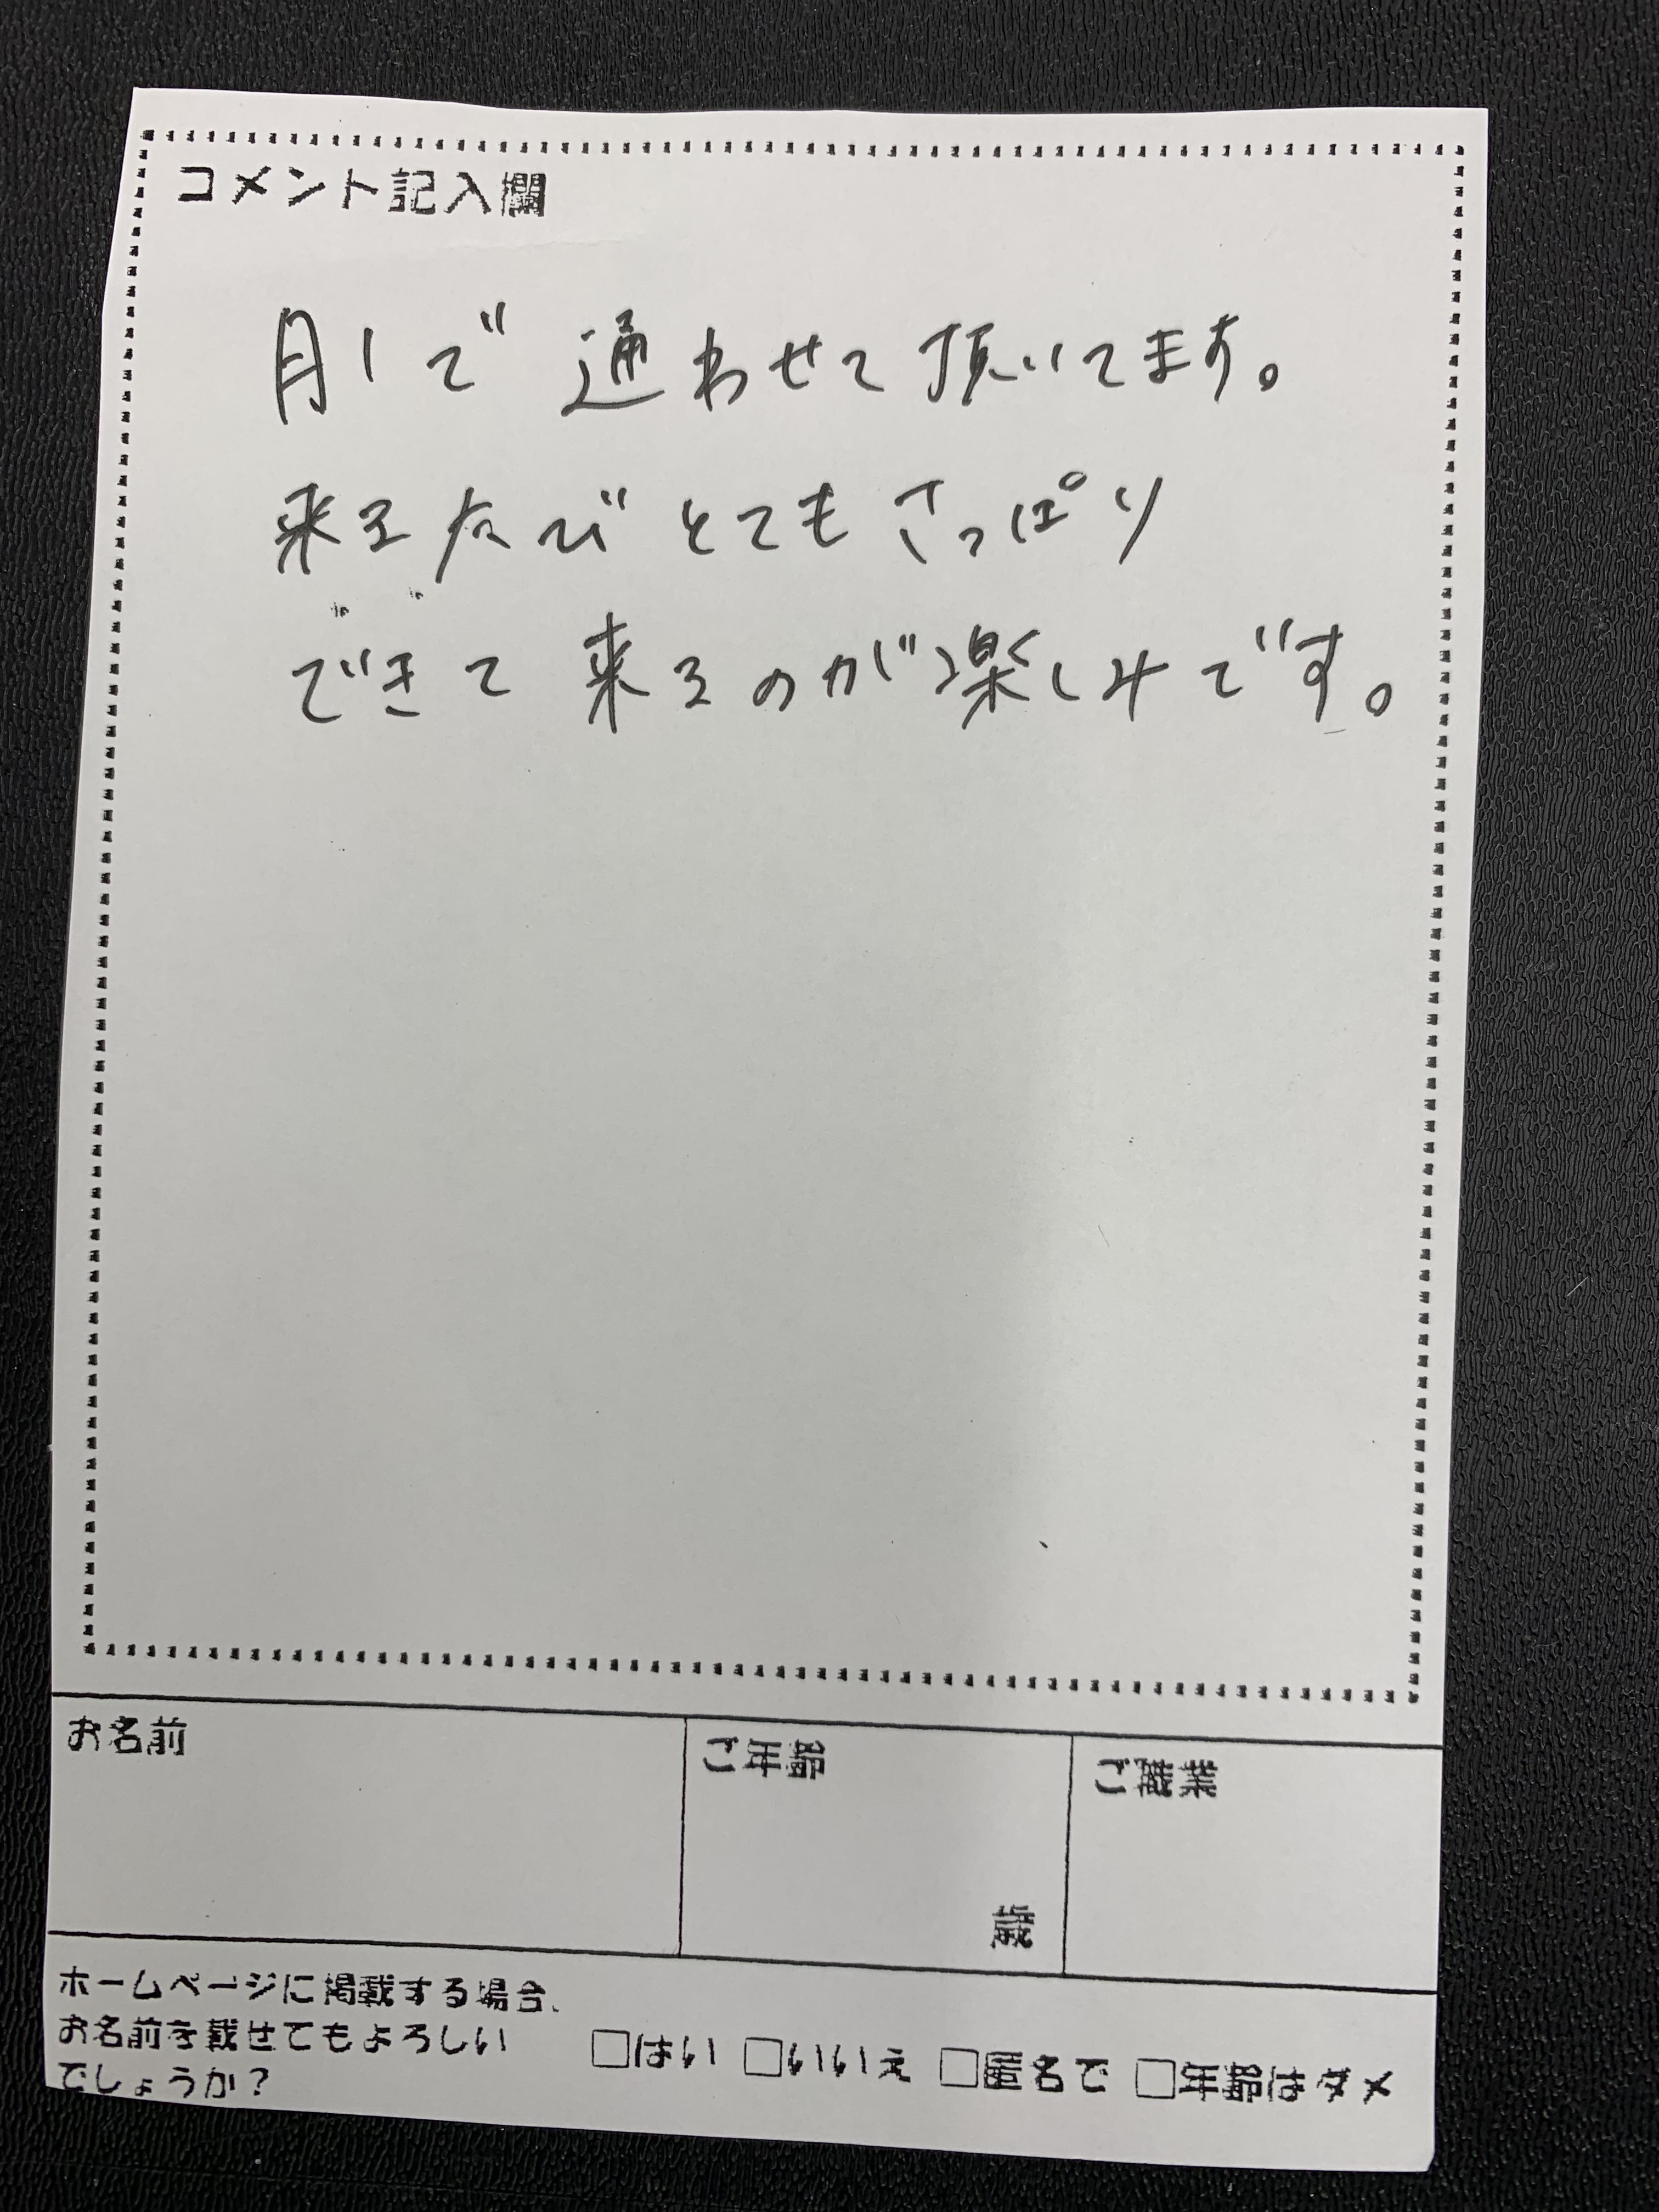 コメント記入欄
月1で通わせて頂いてます。
来るたびとてもさっぱり
できて来るのが楽しみです。
お名前
ご年齢
ご職業
歳
ホームページに掲載する場合、
お名前を載せてもよろしい
でしょうか？
□はい □いいえ □匿名で □年齢はダメ